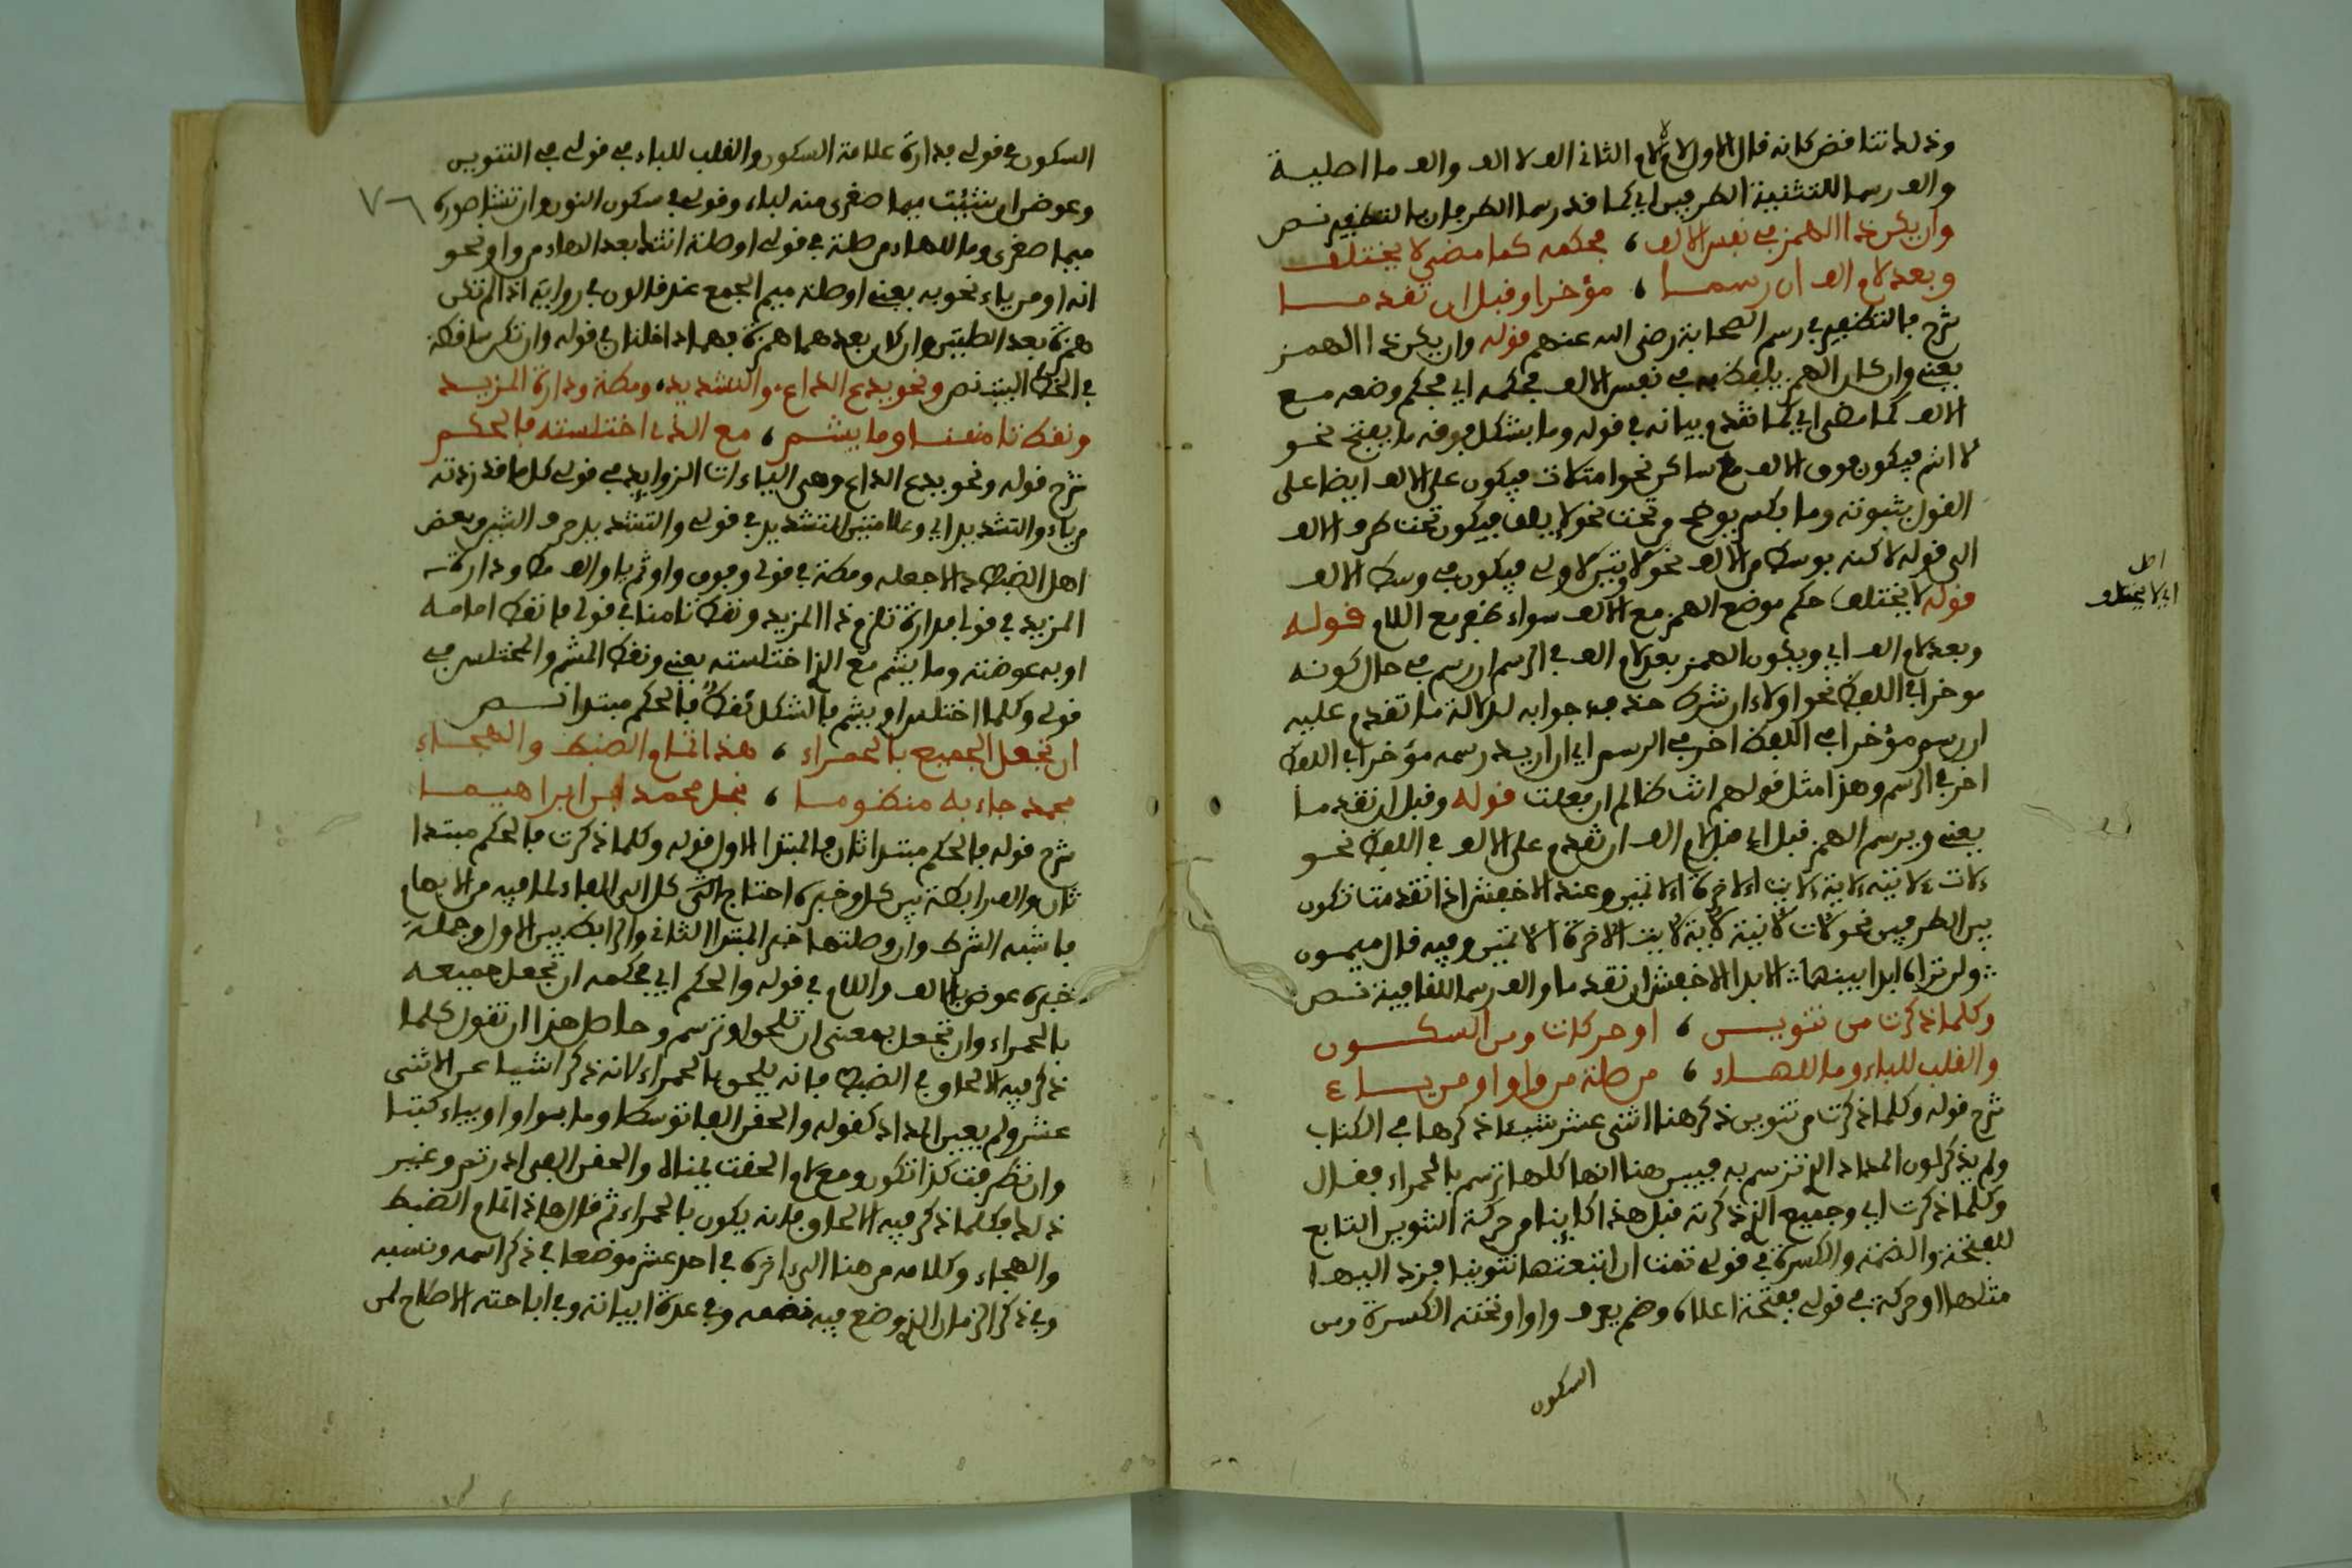 وذلك تناقض كانه قال الاول لام الثانى الف لا الف والف ما اصلية
والف رسما للتثنية الطرفين اي كما قد رسما الطرفان بالتظفير نص
وان يكن ذا الهمز في نفس الالف ، فحكمه كما مضى لا يختلف
وبعد لام الف ان رسما ، مؤخرا وقبل ان تقدما
شرح بالتظفير في رسم الصحابة رضي الله عنهم قوله وان يكن ذا الهمز
يعني وان كان الهمز في نفس الالف فحكمه اي فحكم وضعه مع
الالف كما مضى اي كما تقدم بيانه في قوله وما بشكل فوقه ما يفتح نحو
لا انتم فيكون فوق الالف مع ساكن نحو امتلات فيكون على الالف ايضا على
القول بثبوته وما بكسر يوضع من تحت نحو لايلاف فيكون تحت طرف الالف
الى قوله لاكنه بوسط من الالف فيكون في وسط الالف
قوله لا يختلف حكم موضع الهمز مع الالف سواء ظفر مع اللام قوله
وبعد لام الف اي ويكون الهمز بعد لام الف في الرسم ان رسم في حال كونه
موخرا في اللفظ نحو اولاء ان شرط حذف جوابه لدلالة ما تقدم عليه
ان رسم مؤخرا في اللفظ اخر في الرسم اي ان اريد رسمه مؤخرا في اللفظ
اخر في الرسم وهذا مثل قولهم انت ظالم ان فعلت قوله وقبل ان تقدما
يعني ويرسم الهمز قبل اي قبل لام الف ان تقدم على الالف في اللفظ نحو
وعند الاخفش اذا تقدمت تكون
بين الطرفين نحو وفيه قال ميمون
ولن تراه ابدا بينهما الا بدا الاخفش ان تقدما والف رسما للقافية نص
وكلما ذكرت من تنوين ، او حركات ومن السكون
والقلب للباء وما للهاء ، من صلة من واو او من ياء
شرح قوله وكلما ذكرت من تنوين ذكر هنا اثنى عشر شيئا ذكرها في الكتاب
ولم يذكر لون المداد الذي ترسم به فبين هنا انها كلها ترسم بالحمراء فقال
وكلما ذكرت اي وجميع الذي ذكرته قبل هذا كاينا من حركة التنوين التابع
للفتحة والضمة والكسرة في قولي ثمت ان اتبعتها تنوينا فزد اليها
مثلها او حركة في قولي ففتحة اعلاه وضم يعرف واوا وتحته الكسرة ومن
السكون
اصل
اي لا يختلف
السكون في قولي فدارة علامة السكون والقلب للباء في قولي في التنوين
وعوضن ان شئت ميما صغرى منه لباء وقولي في سكون النون وان تشا صورة
ميما صغرى وما للهاء من صلة في قولي او صلة اتتك بعد الهاء من واو نحو
انه او من ياء نحو به يعني او صلة ميم الجمع عند قالون في روايته اذا لم تكن
همزة بعد الطبيعي وان كان بعدهما همزة فهما داخلتان في قوله وان تكن ساقطة
في الخط البيت نص ونحو يدع الداع والتشديد، ومطة ودارة المزيد
ونقط تامنا وما يشم ، مع الذي اختلسته فالحكم
شرح قوله ونحو يدع الداع وهى الياءات الزوايد في قولي كل ما قد زدته
من ياء والتشديد اي وعلامتين التشديد في قولي والتشديد حرف الشين وبعض
اهل الضبط دالا جعله ومطة في قولي وفوق واو ثم يا والف مط ودارة
المزيد في قولي فدارة تلزم ذا المزيد ونقط تامنا في قولي فانقط امامه
او به عوضته وما يشم مع الذي اختلسته يعني ونقط المشم والمختلس في
قولي وكلما اختلس او يشم فالشكل نقط فالحكم مبتدا نص
ان تجعل الجميع بالحمراء ، هذا تمام الضبط والهجاء
محمد جاء به منظوما ، نجل محمد ابن ابراهيما
شرح قوله فالحكم مبتدا ثان فالمبتدا الاول قوله وكلما ذكرت فالحكم مبتدا
ثان والفا رابطة بين كل وخبره احتاج الى الفاء لما فيه من الابهام
فاشبه الشرط وان وصلتها خبر المبتدا الثاني والرابط بين الاول وجملة
خبره عوض الالف واللام في قوله والحكم اي فحكمه ان تجعل جميعه
بالحمراء وان تجعل بمعنى ان تلحق او ترسم وحاصل هذا ان تقول كلما
ذكر فيه الالحاق في الضبط فانه يلحق بالحمراء لانه ذكر اشياء عن الاثنى
عشر ولم يعين المداد كقوله والحقن الفا توسطا وما بواو او بياء كتبا
وان تطرفت كذا تكون ومع لام الحقت يمناه والحقن الفى ادارتم وغير
ذلك فكلما ذكر فيه الالحاق فانه يكون بالحمراء ثم قال هذا تمام الضبط
والهجاء وكلامه من هنا الى اخره في احد عشر موضعا في ذكر اسمه ونسبه
وفي ذكر الزمان الذي وضع فيه نظمه وفي عدة ابياته وفي اباحته الاصلاح لمن
٧٦